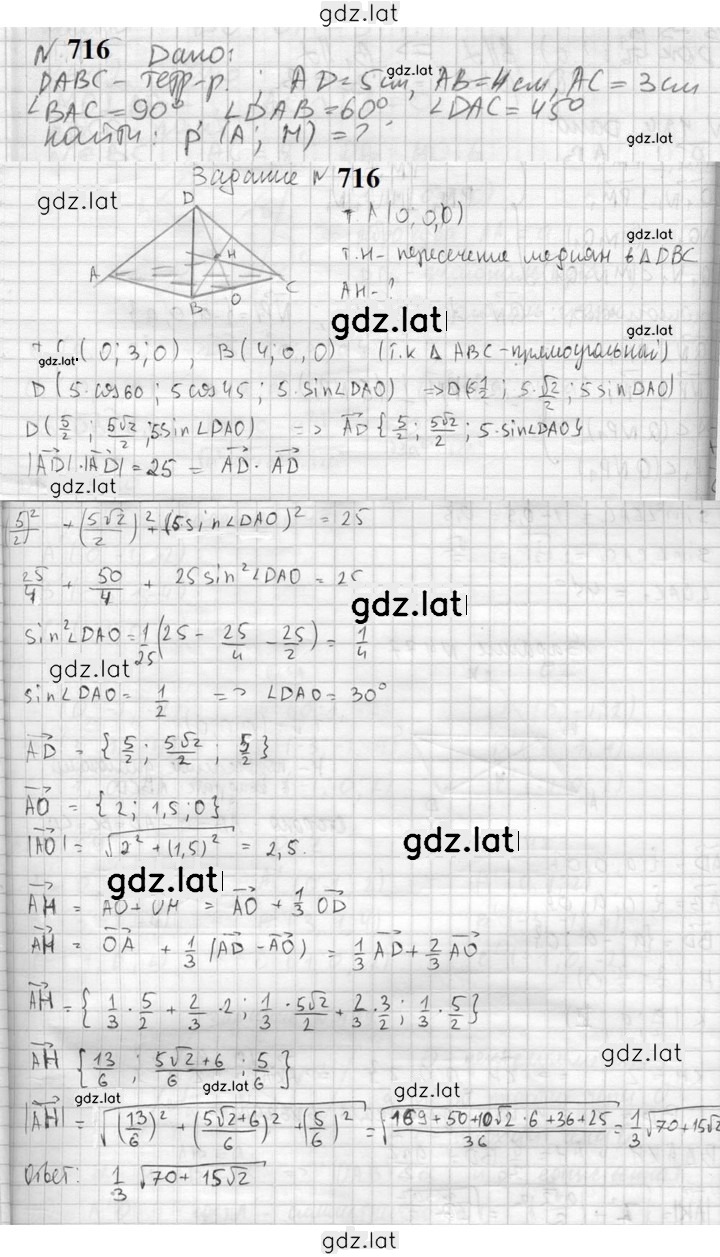 gdz.lat
N 716 Дано:
gdz.lat
DABC – тетр-р. ; AD=5см, AB=4см, AC=3см
∠BAC=90°, ∠DAB=60°, ∠DAC=45°
найти: ρ (A; H) = ?
gdz.lat
Задание N 716
gdz.lat
D
т A(0; 0,0)
gdz.lat
т.H- пересечение медиан в ΔDBC
A H C B O
AH-?
gdz.lat
gdz.lat
т C(0; 3; 0), B(4; 0, 0) (т.к Δ ABC-прямоугольный)
gdz.lat
D(5·cos60; 5cos45; 5·sin∠DAO) => D(5·1/2; 5·√2/2; 5sinDAO)
D(5/2; 5√2/2; 5sin∠DAO) => AD→{5/2; 5√2/2; 5·sin∠DAO}
|AD→|·|AD→|=25 = AD→·AD→
gdz.lat
(5/2)² + (5√2/2)² + (5sin∠DAO)² = 25
25/4 + 50/4 + 25sin²∠DAO = 25
gdz.lat
sin²∠DAO = 1/25(25 - 25/4 - 25/2) = 1/4
gdz.lat
sin∠DAO = 1/2 => ∠DAO = 30°
AD→ = {5/2; 5√2/2; 5/2}
AO→ = {2; 1,5; 0}
|AO→| = √(2² + (1,5)²) = 2,5.
gdz.lat
gdz.lat
AH→ = AO + OH = AO→ + 1/3 OD→
AH→ = OA→ + 1/3 (AD→ - AO→) = 1/3 AD→ + 2/3 AO→
AH→ = {1/3·5/2 + 2/3·2; 1/3·5√2/2 + 2/3·3/2; 1/3·5/2}
gdz.lat
AH→ {13/6; 5√2+6/6; 5/6}
gdz.lat
gdz.lat
gdz.lat
|AH→| = √((13/6)² + (5√2+6/6)² + (5/6)²) = √(169+50+10√2·6+36+25/36) = 1/3 √70+15√2
ответ: 1/3 √70+15√2
gdz.lat